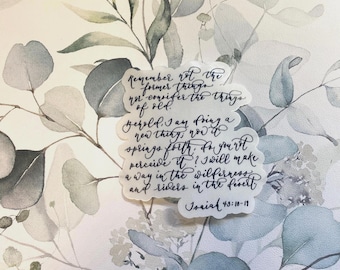 Remember not the
former things
nor consider the things
of old.
Behold, I am doing a
new thing, now it
springs forth, do you not
perceive it? I will make
a way in the wilderness
and rivers in the desert
Isaiah 43:18-19